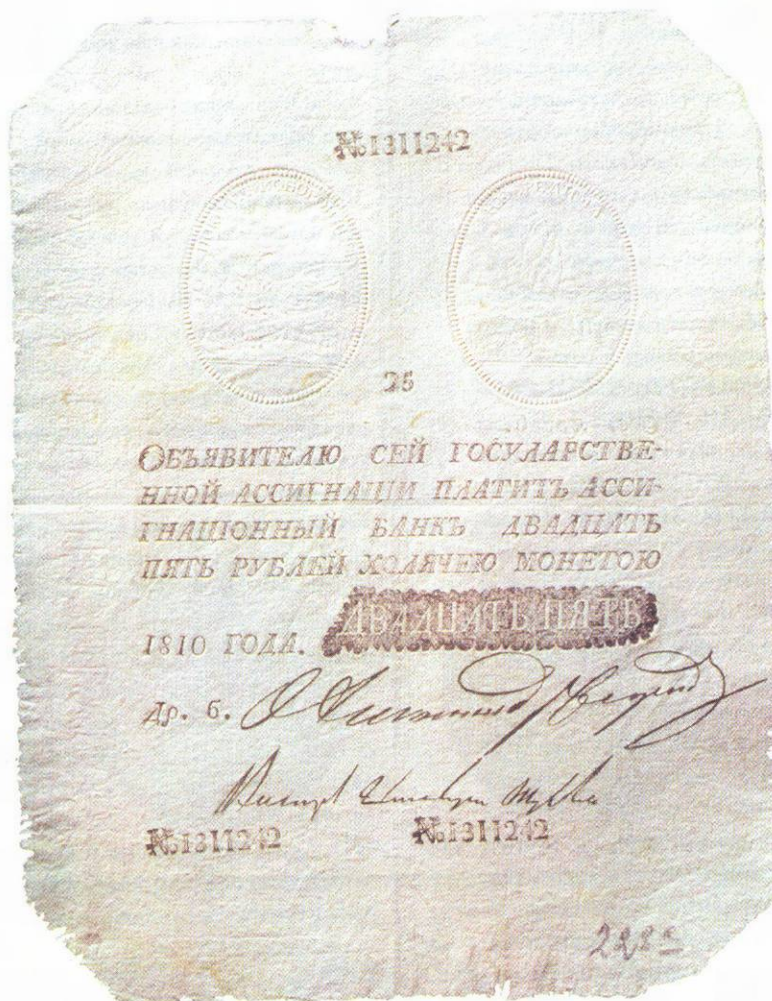 №1311242
25
ОБЪЯВИТЕЛЮ СЕЙ ГОСУДАРСТВЕ-
ННОЙ АССИГНАЦІИ ПЛАТИТЪ АССИ-
ГНАЦІОННЫЙ БАНКЪ ДВАДЦАТЬ
ПЯТЬ РУБЛЕЙ ХОДЯЧЕЮ МОНЕТОЮ
1810 ГОДА. ДВАДЦАТЬ ПЯТЬ
Др. б.
№1311242 №1311242